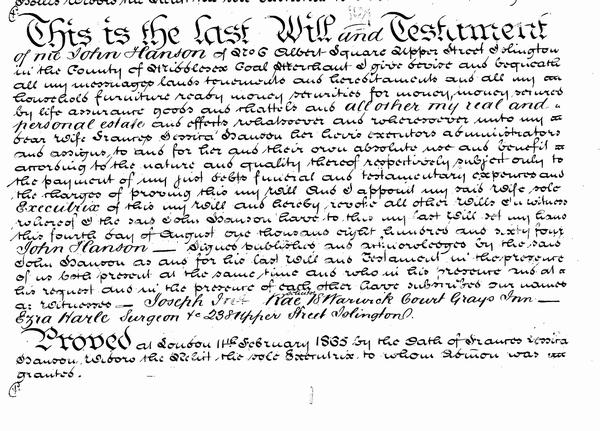 This is the last Will and Testament
of me John Hanson of No 6 Albert Square Upper Street Islington
in the County of Middlesex Coal Merchant I give devise and bequeath
all my messuages lands tenements and hereditaments and all my
household furniture ready money securities for money, money secured
by life assurance goods and chattels and all other my real and
personal estate and effects whatsoever and wheresoever unto my
dear Wife Frances Jessica Hanson her heirs executors administrators
and assigns, to and for her and their own absolute use and benefit
according to the nature and quality thereof respectively subject only to
the payment of my just debts funeral and testamentary expences and
the charges of proving this my Will And I appoint my said Wife, sole
Executrix of this my Will and hereby revoke all other Wills In witness
whereof I the said John Hanson have to this my last Will set my hand
this fourth day of August one thousand eight hundred and sixty four
John Hanson — Signed published and acknowledged by the said
John Hanson as and for his last Will and Testament in the presence
of us both present at the same time and who in his presence and at
his request and in the presence of each other have subscribed our names
as Witnesses — Joseph Rae, 18 Warwick Court Grays Inn —
Ezra Harle Surgeon &c 238 Upper Street Islington.
Proved at London 11th February 1865 by the Oath of Frances Jessica
Hanson, Widow the Relict, the sole Executrix to whom Admon was
granted.